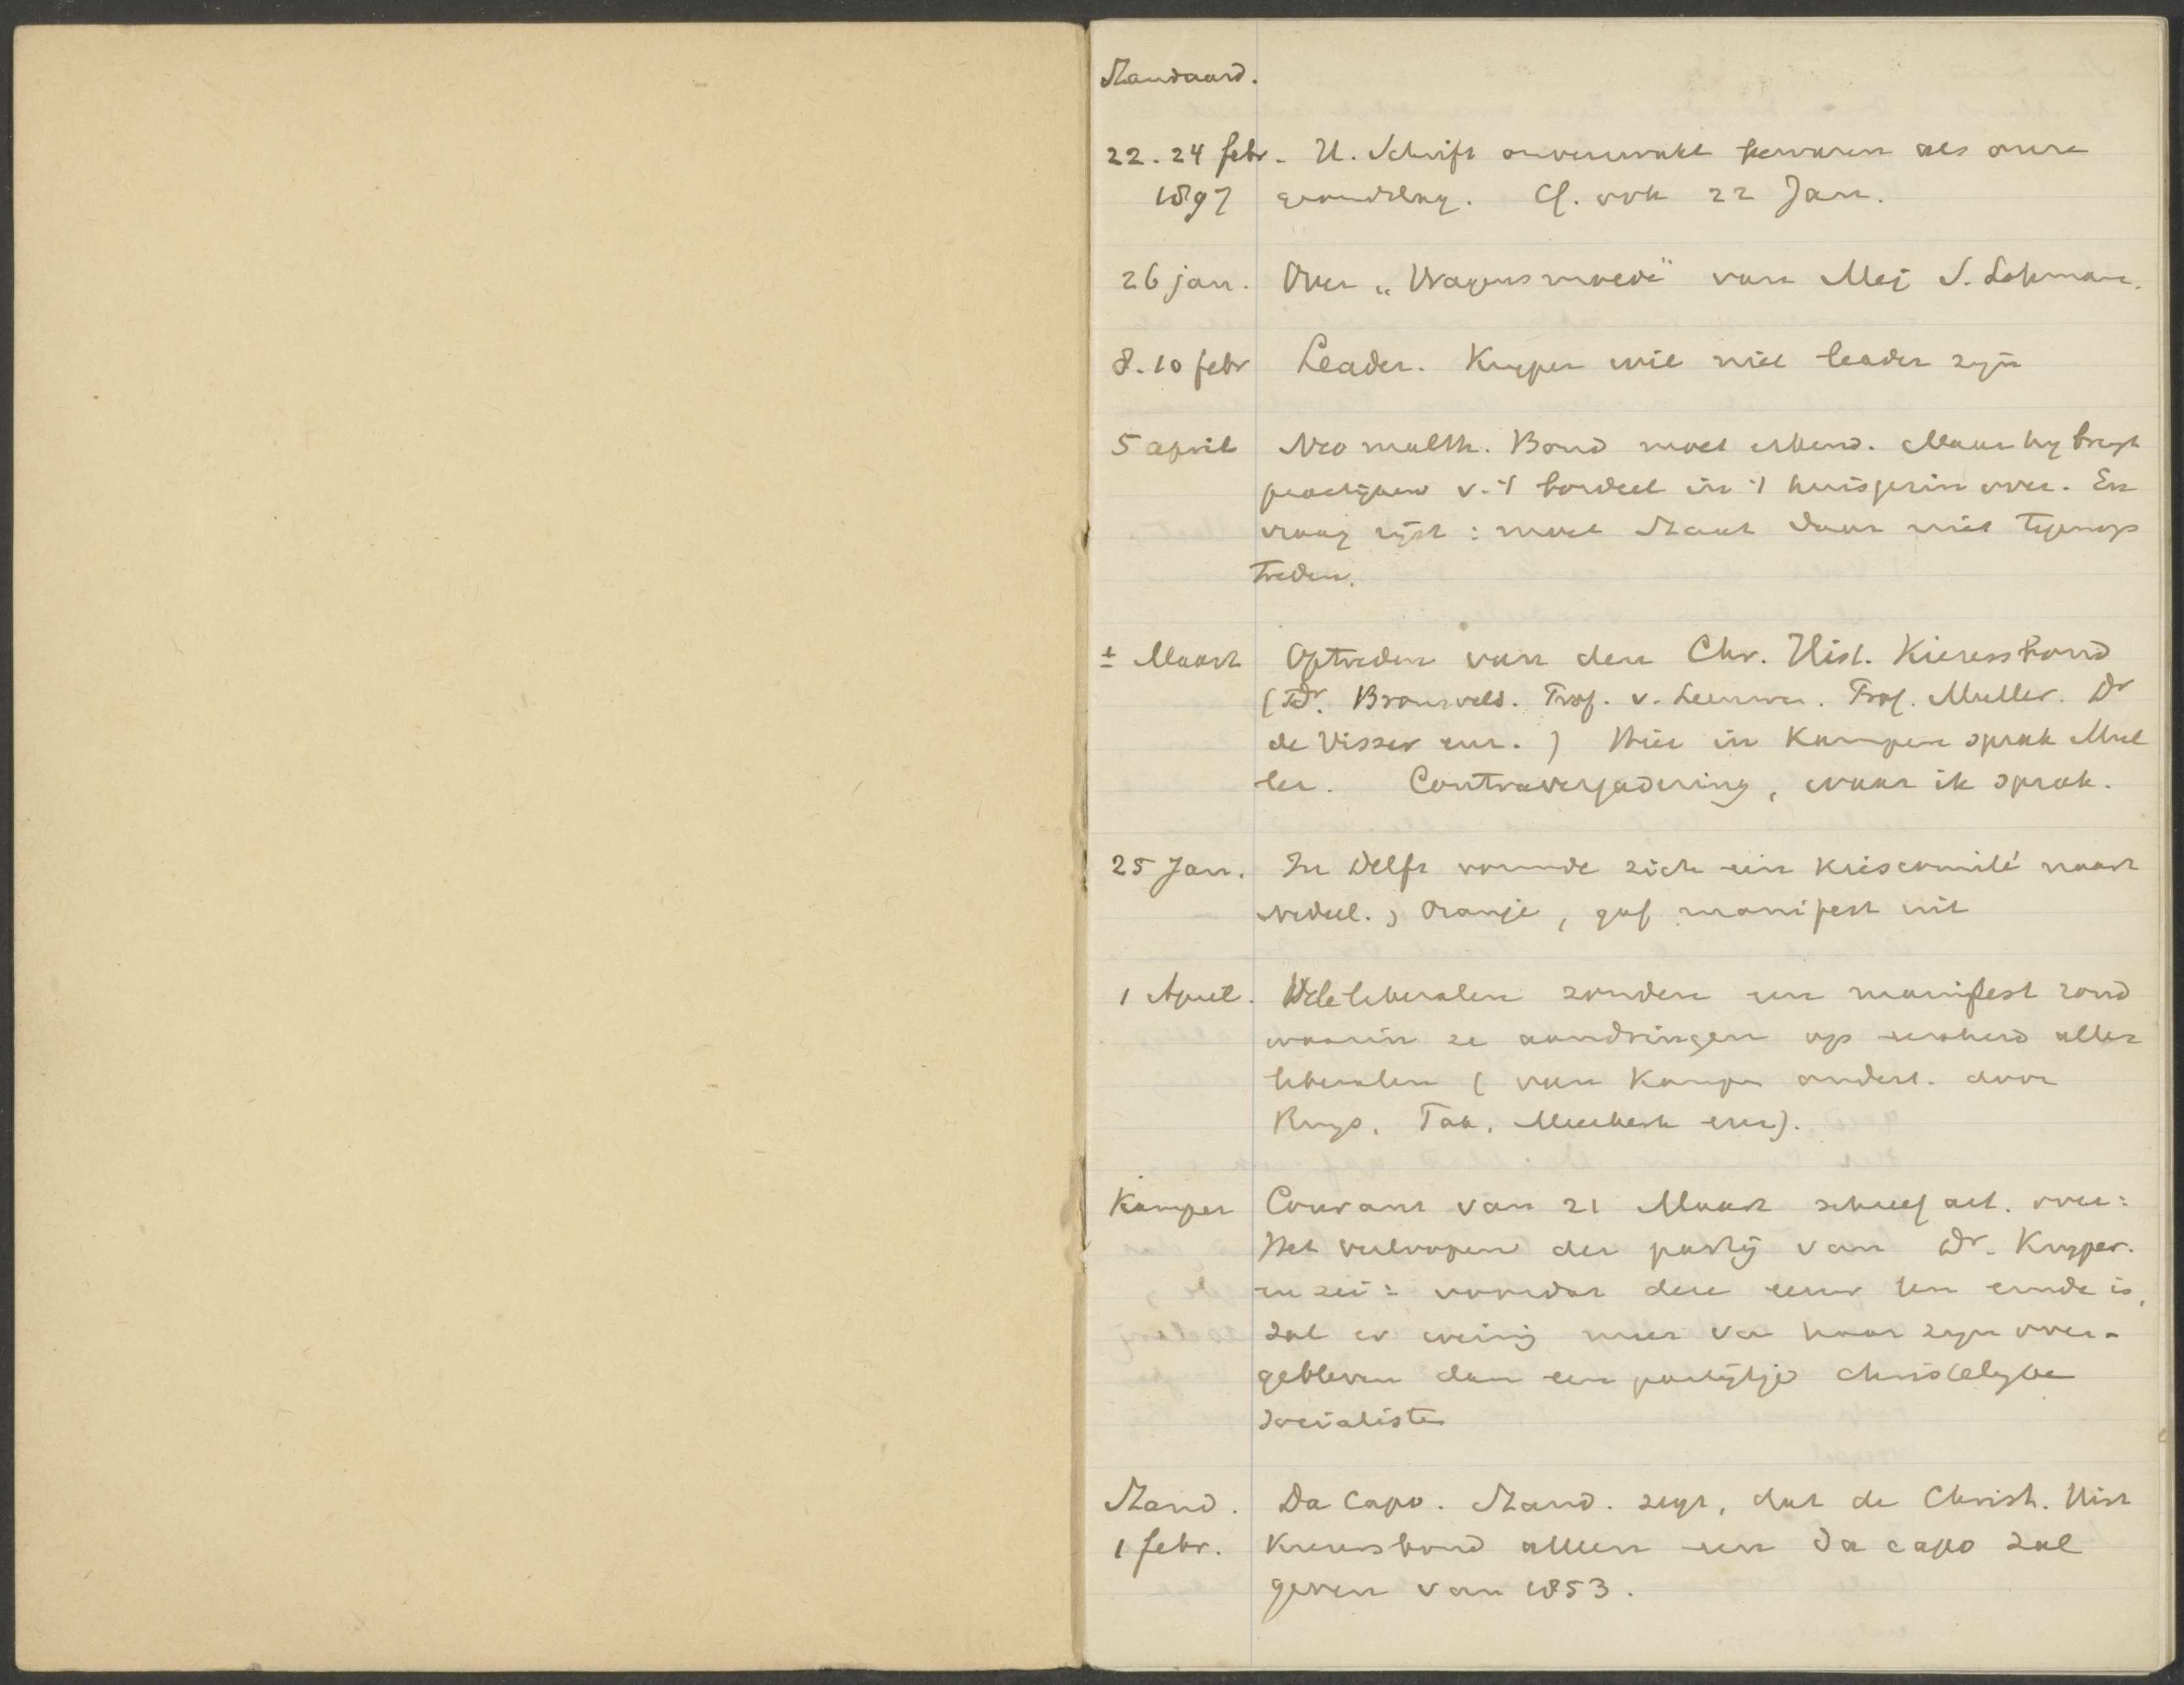 Standaard.
22. 24 febr. H. Schrift onverzwakt bewaren als onze
1897 grondslag. Cf. ook 22 Jan.
26 jan. Over „Vragensmoede" van Mej S. Lohman.
8. 10 febr Leader. Kuyper wil niet leader zijn
5 april Neo malth. Bond moet erkend. Maar hy brengt
practijken v. 't bordeel in 't huisgezin over. En
vraag rijst: moet Staat daar niet tegenop
treden.
± Maart Optreden van den Chr. Hist. Kiezersbond
(Dr. Bronsveld. Prof. v. Leeuwen. Prof. Muller. Dr
de Visser enz.) Hier in Kampen sprak Mul
ler. Contravergadering, waar ik sprak.
25 Jan. In Delft vormde zich een kiescomité voor
Nederl. & Oranje, gaf manifest uit
1 April. Vele liberalen zonden een manifest rond
waarin ze aandringen op eenheid aller
liberalen (van Kampen ondert. door
Ruys. Tak. Meerbeek enz).
Kamper Courant van 21 Maart schreef art. over:
Het verloopen der partij van Dr. Kuyper.
en zei: voordat deze eeuw ten einde is,
zal er weinig meer van haar zijn over-
gebleven dan een partijtje christelyke
socialisten
Stand. Da Capo. Stand. zegt, dat de Christ. Hist
1 febr. Kiezersbond alleen een da capo zal
geven van 1853.